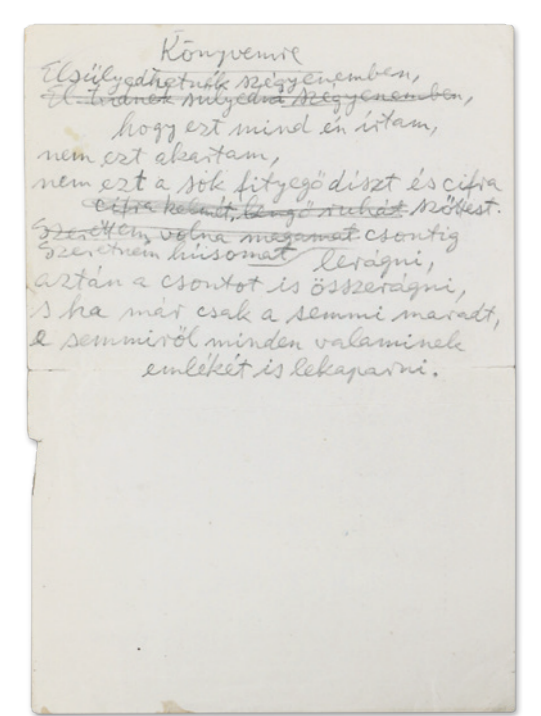 Könyvemre
Elsülyedhetnék szégyenemben,
El tudnék sülyedni szégyenemben,
hogy ezt mind én írtam,
nem ezt akartam,
nem ezt a sok fityegő díszt és cifra
cifra kelmét, lengő ruhát szőttest.
Szerettem volna magamat csontig
Szeretném húsomat lerágni,
aztán a csontot is összerágni,
s ha már csak a semmi maradt,
e semmiről minden valaminek
emlékét is lekaparni.